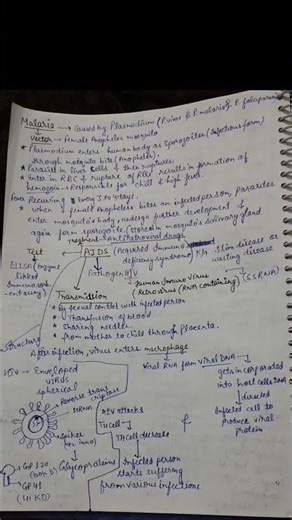 Malaria → Caused by Plasmodium (P.vivax, P. malariae, P. falciparum)
vector → female Anopheles mosquito
* Plasmodium enters human body as sporozoites (Infectious form)
through mosquito bite (Anopheles).
* Parasite in liver cells & then ruptures.
* Enter in RBC & rupture of RBC results in formation of
hemozoin → Responsible for chill & high fever.
Recurring every 3 to 4 days.
* when a female Anopheles bites an infected person, Parasites
enter mosquito's body, undergo further development &
again form sporozoite. (store in mosquito's salivary gland)
Treatment → Antiretroviral drugs
Test
AIDS (Acquired Immuno
deficiency syndrome)
Slim disease or
wasting disease
ELISA (enzyme
linked
Pathogen HIV
Human Immuno Virus
(Retrovirus (RNA containing)
(SSRNA)
Transmission
* By sexual contact with infected person
* Transfusion of blood
* Sharing needles
* from mother to child through placenta.
Structure
After infection, virus enters macrophage
HIV → Enveloped
virus
spherical
Viral RNA form Viral DNA
gets incorporated
into host cells DNA
directed
Infected cell to
produce viral
protein
Reverse transcriptase
HIV attacks
TH cell
TH cell decrease
Spikes
GP 120
GP 41
Glycoproteins
Infected person
starts suffering
from various infections